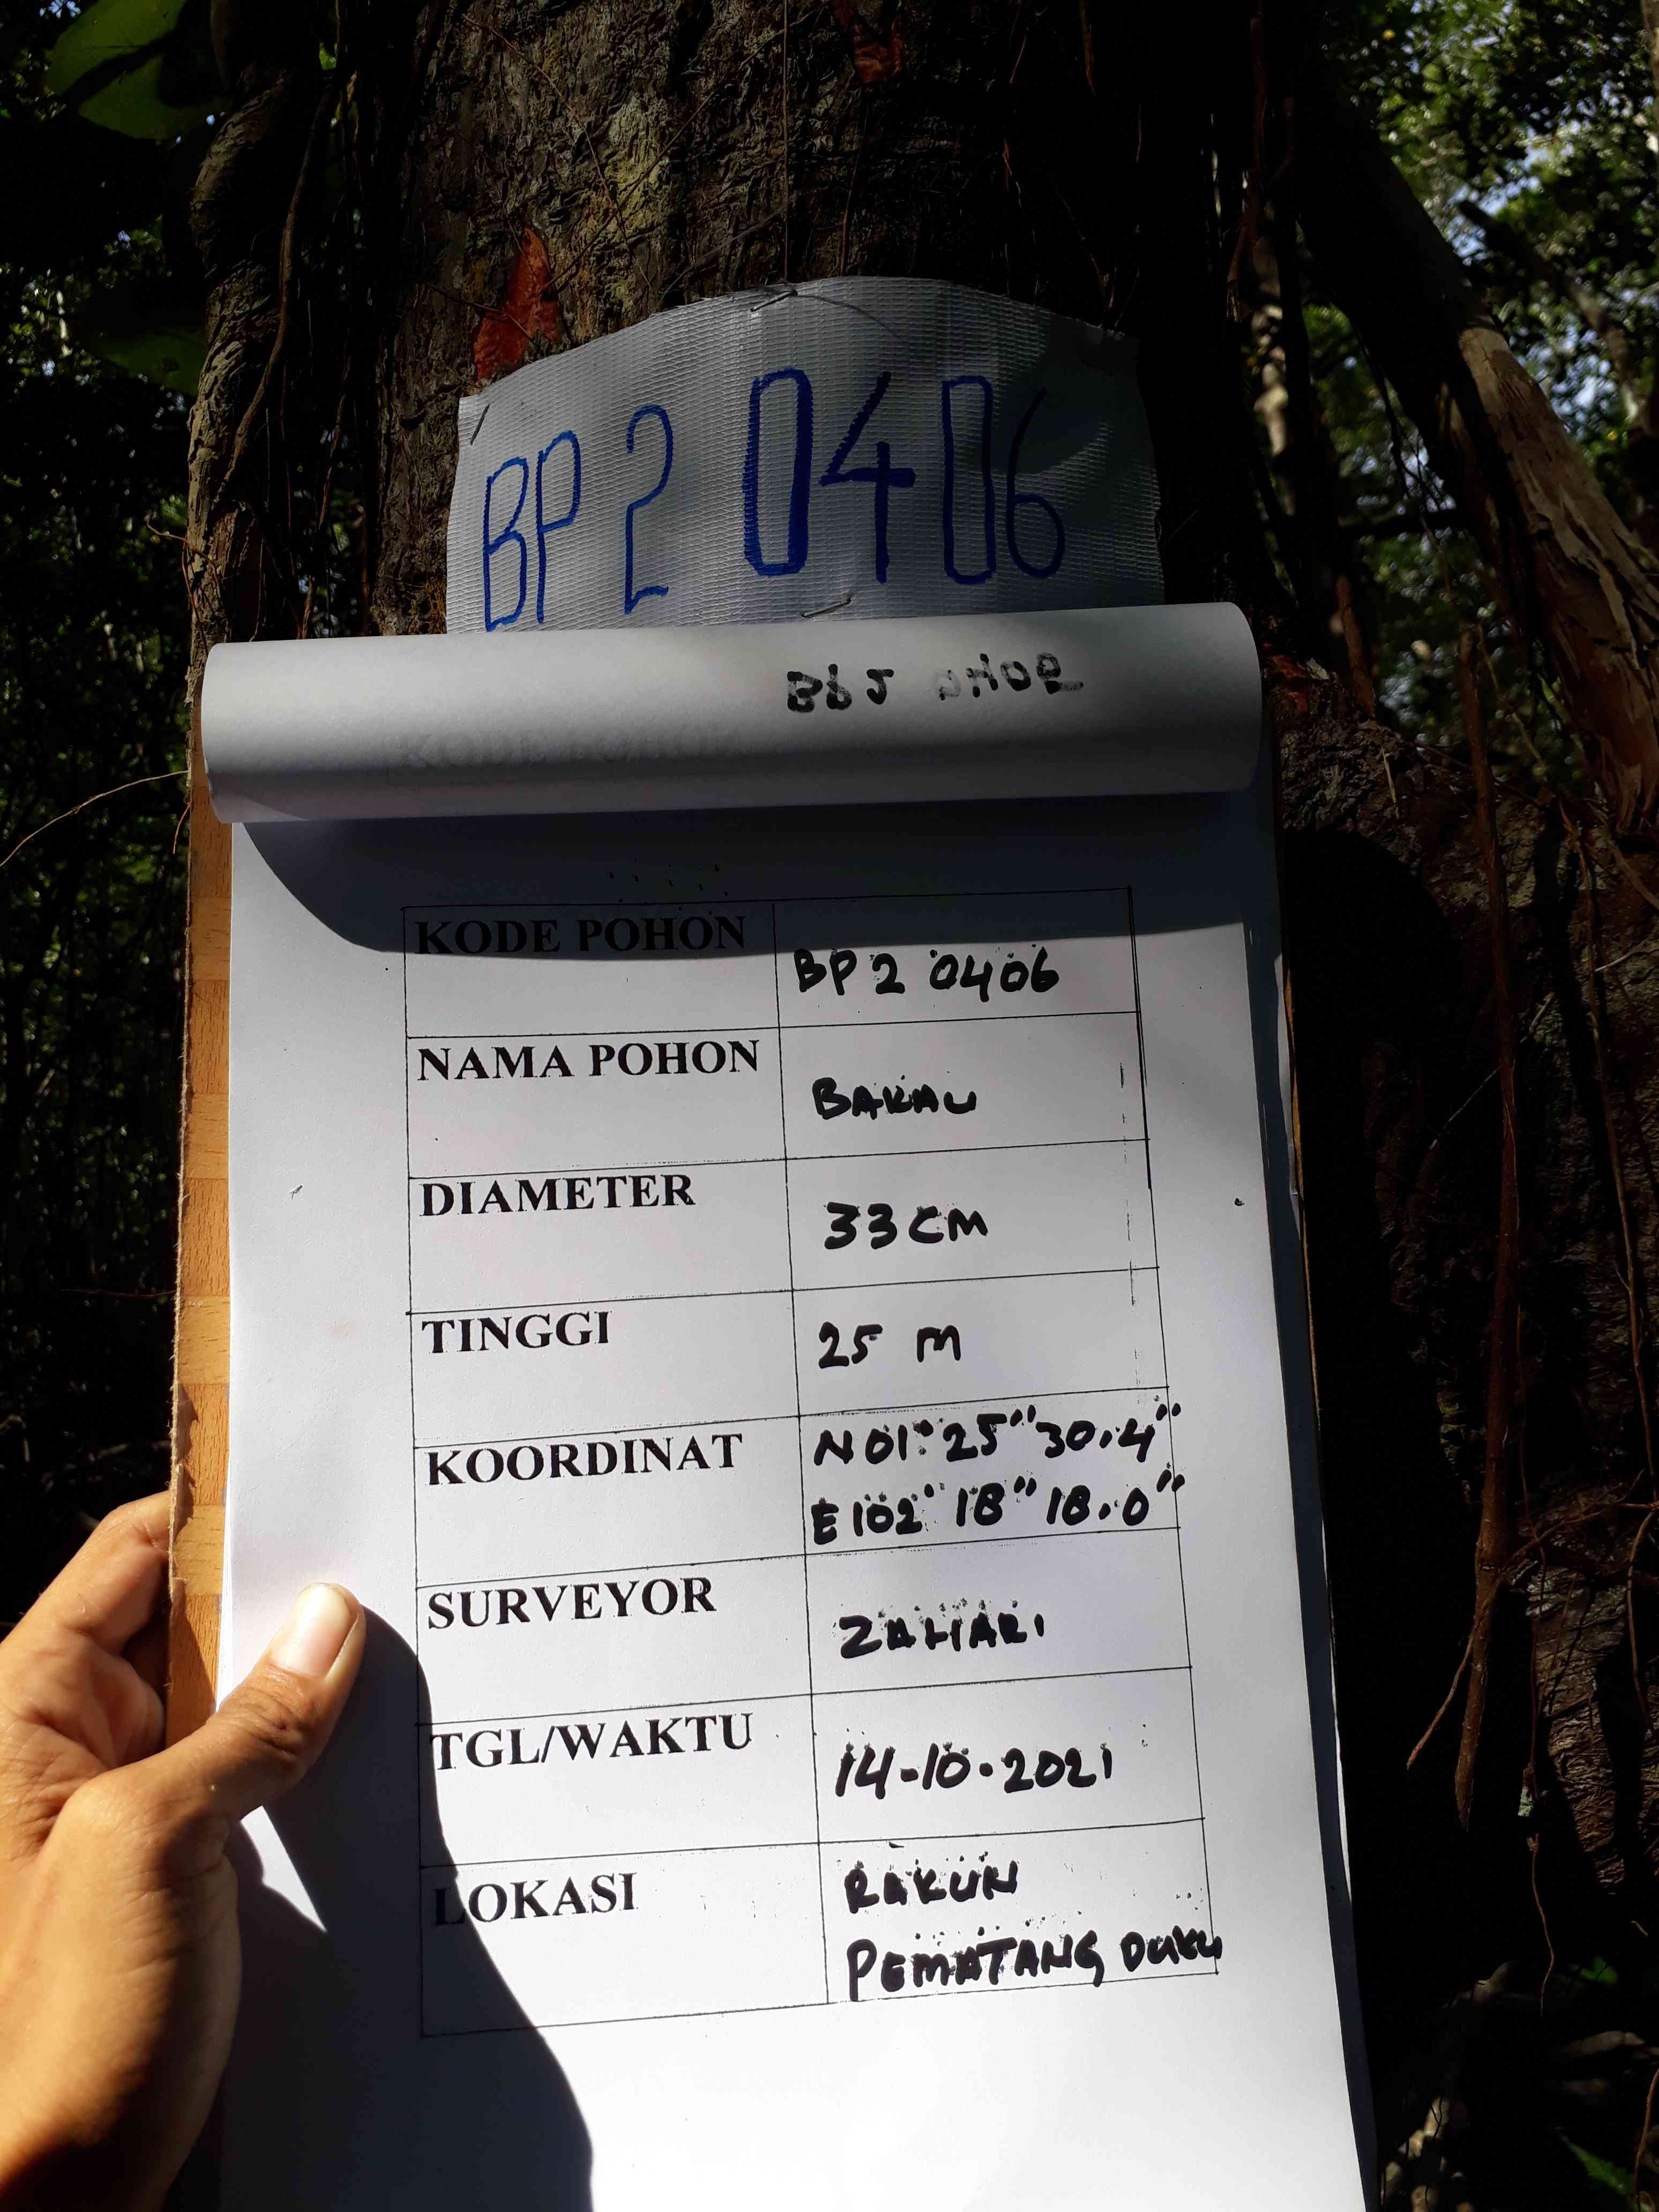 BP 2 0406
KODE POHON
BP 2 0406
NAMA POHON
BAKAU
DIAMETER
33 CM
TINGGI
25 M
KOORDINAT
N 01° 25" 30.4"
E 102° 18" 18.0"
SURVEYOR
ZALIARI
TGL/WAKTU
14-10-2021
LOKASI
RAKUN
PEMATANG DUKU